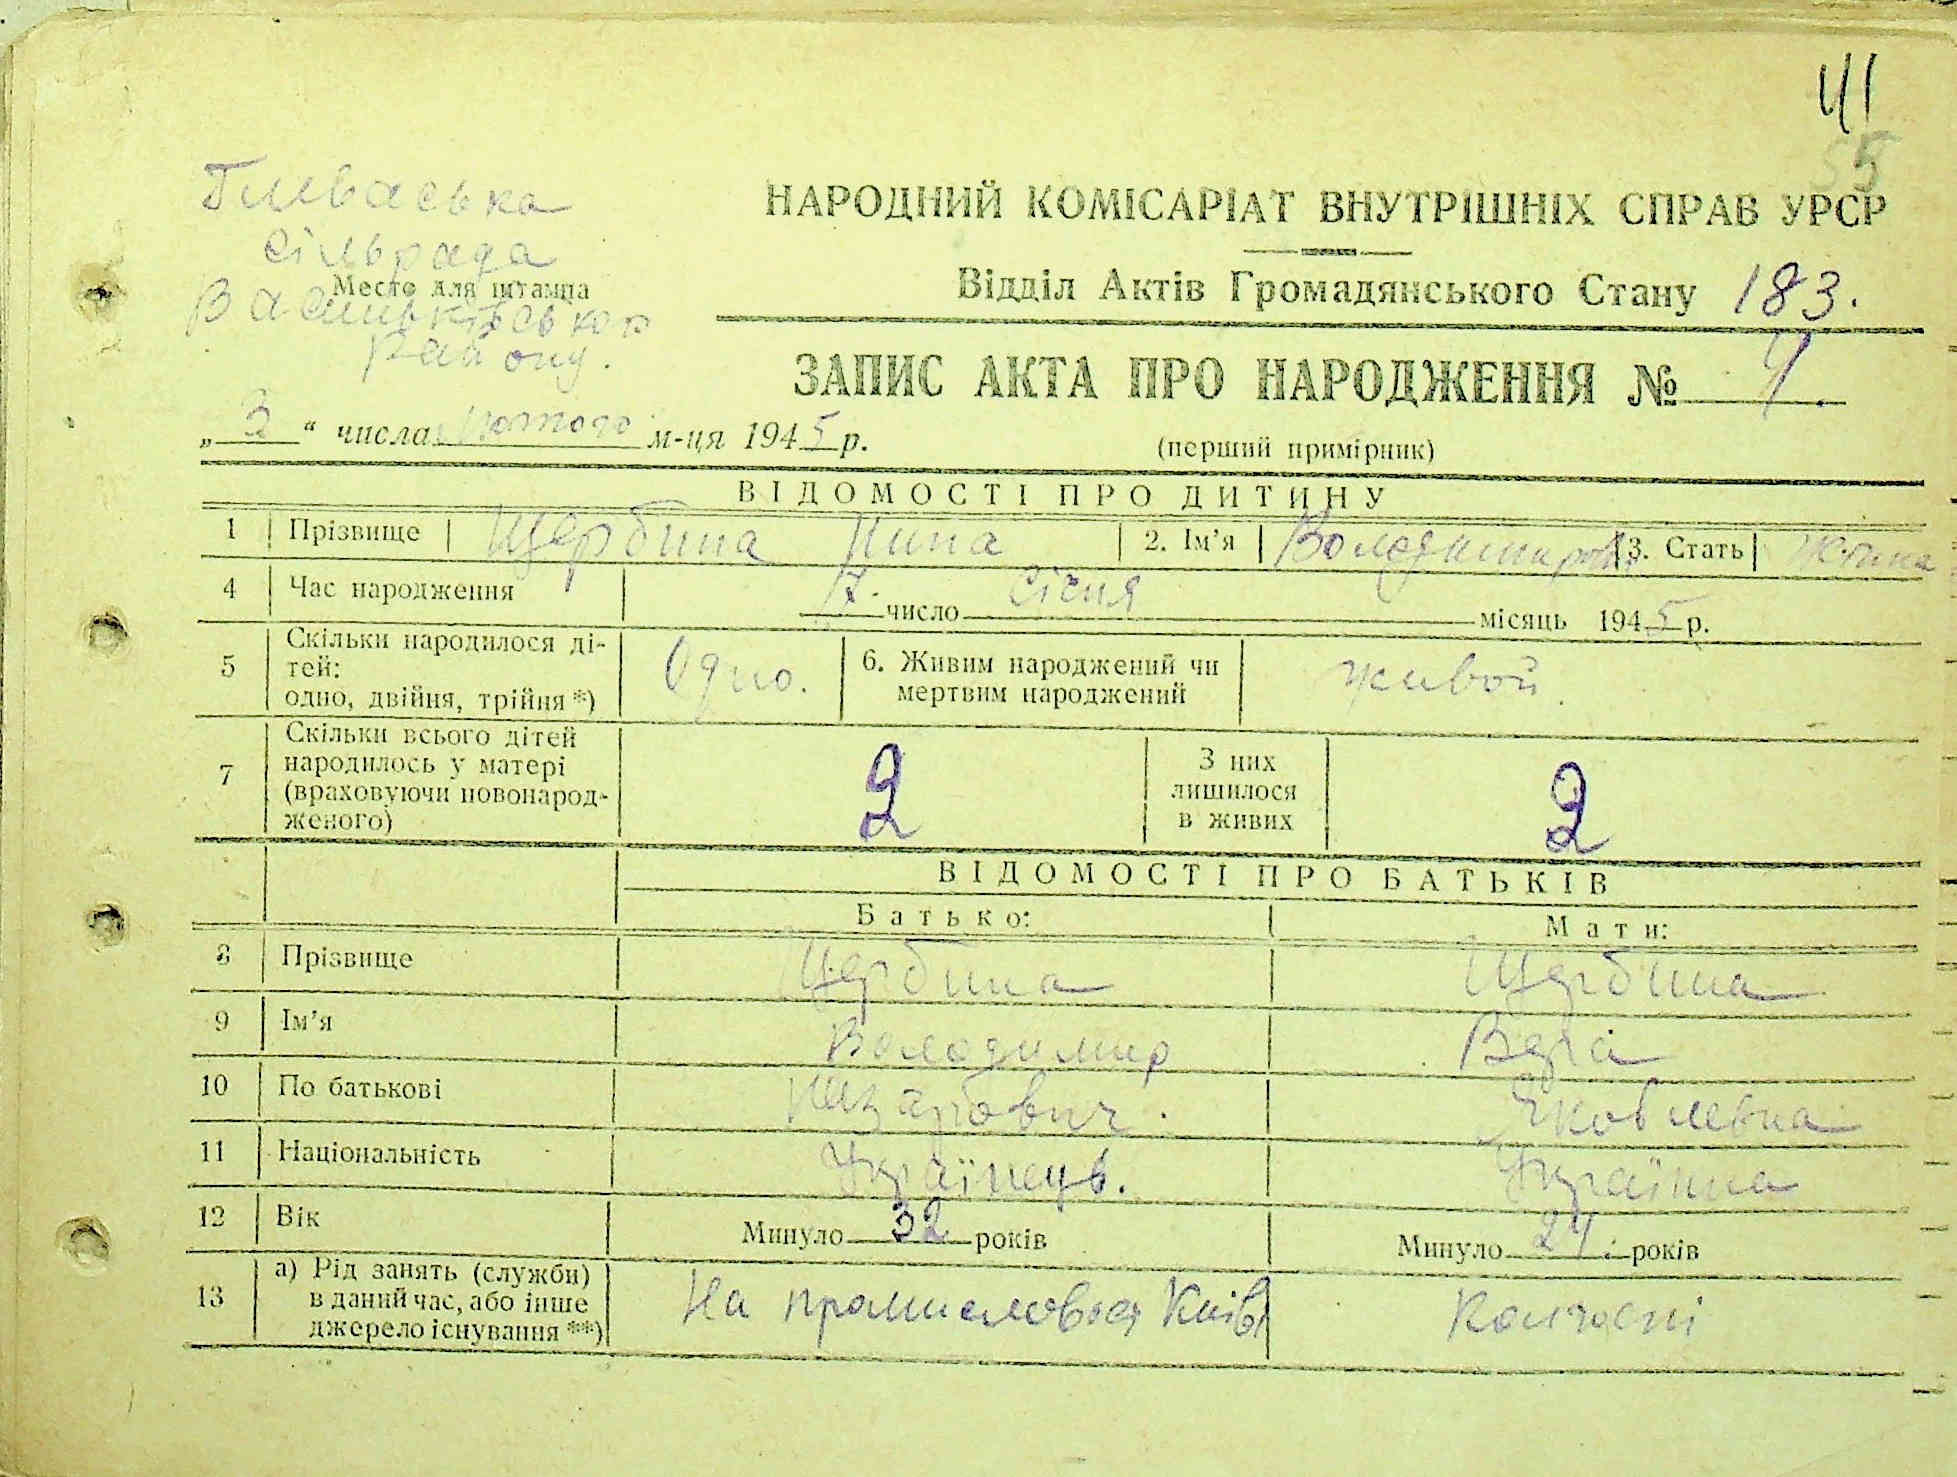 41
55
Гливаська
сільрада
Место для штампа
Васильківського
району.
НАРОДНИЙ КОМІСАРІАТ ВНУТРІШНІХ СПРАВ УРСР
Відділ Актів Громадянського Стану 183.
ЗАПИС АКТА ПРО НАРОДЖЕННЯ №
„ 3 “ числа лютого м-ця 1945 р.
(перший примірник)
ВІДОМОСТІ ПРО ДИТИНУ
1 Прізвище Щербина Нина 2. Ім’я 3. Стать
4 Час народження 7. число Січня місяць 1945 р.
5 Скільки народилося ді-
тей:
одно, двійня, трійня *) Одно. 6. Живим народжений чи
мертвим народжений живой.
7 Скільки всього дітей
народилось у матері
(враховуючи новонарод-
женого) 2 З них
лишилося
в живих 2
ВІДОМОСТІ ПРО БАТЬКІВ
Батько: Мати:
8 Прізвище Щербина Щербина
9 Ім’я Володимир Вера
10 По батькові Назарович. Яковлевна
11 Національність Українець. Українка
12 Вік Минуло 32 років Минуло 24. років
13 а) Рід занять (служби)
в даний час, або інше
джерело існування **) На Київ Колгоспі